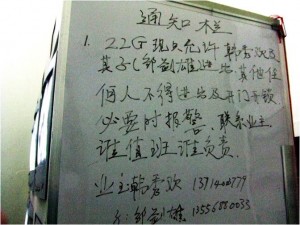 通知栏
1. 22G 现只允许韩秀欢及
其子(邹剑雄)进出其他任
何人不得进出及开门、锁
必要时报警、联系业主
谁值班谁负责
业主韩秀欢 13714006779
邹剑雄 13556880033